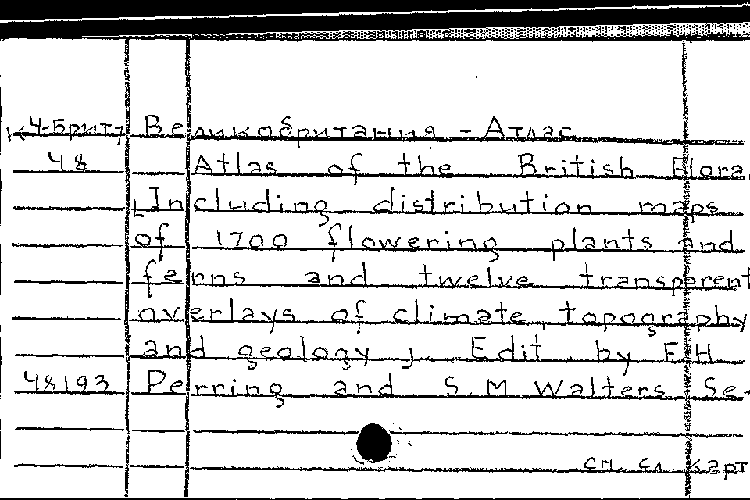 К4-Брит7 Великобритания - Атлас
48 Atlas of the British Flora.
[Including distribution maps
of 1700 flowering plants and
ferns and twelve transparent
overlays of climate, topography
and geology]. Edit. by F.H.
48193 Perring and S.M Walters. Se-
см. сл. карт